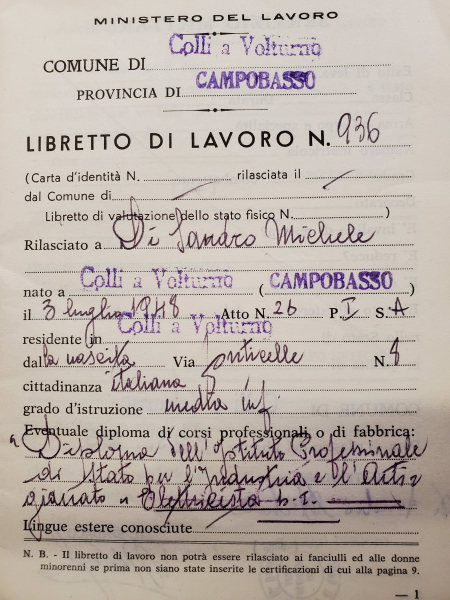 MINISTERO DEL LAVORO
COMUNE DI Colli a Volturno
PROVINCIA DI CAMPOBASSO
LIBRETTO DI LAVORO N. 936
(Carta d'identità N. rilasciata il
dal Comune di
Libretto di valutazione dello stato fisico N. )
Rilasciato a Di Sandro Michele
nato a Colli a Volturno (CAMPOBASSO)
il 3 luglio 1948 Atto N. 26 P. I S. A
residente in Colli a Volturno
dalla nascita Via ponticelle N.
cittadinanza italiana
grado d'istruzione media inf.
Eventuale diploma di corsi professionali o di fabbrica:
Diploma dell'Istituto Professionale
di Stato per l'Industria e l'Arti=
gianato
Lingue estere conosciute
N. B. - Il libretto di lavoro non potrà essere rilasciato ai fanciulli ed alle donne
minorenni se prima non siano state inserite le certificazioni di cui alla pagina 9.
— 1